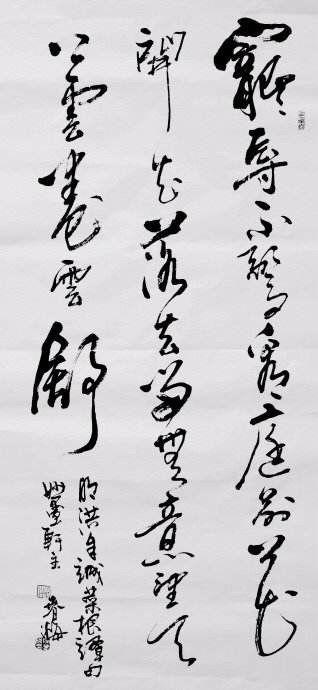 寵辱不驚看庭前花
開花落去留無意望天
上雲卷雲舒
明洪自誠菜根譚句
妙墨軒主